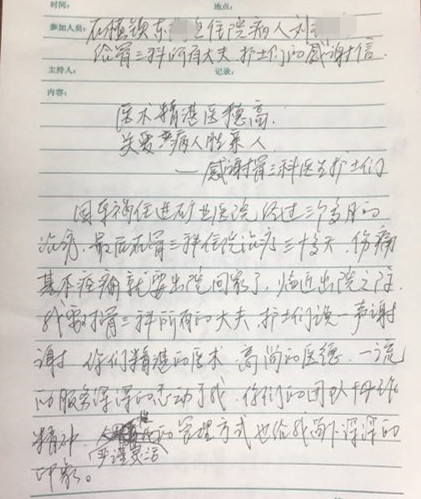 时间： 地点：
参加人员： 在植 东 住院病人刘
给骨三科所有大夫、护士们的感谢信
主持人： 记录：
内容：
医术精湛医德高
关爱 病人胜亲人
——感谢骨三科医生护士们
因车祸住进矿业医院，经过三个多月的
治疗，最后在骨三科住院治疗三十多天，伤病
基本痊癒就要出院回家了，临近出院之际
我要对骨三科所有的大夫、护士们说一声谢
谢，你们精湛的医术，高尚的医德，一流
的服务深深的感动了我，你们的团队协作
精神，严谨灵活的管理方式也给我留下深深的
印象。